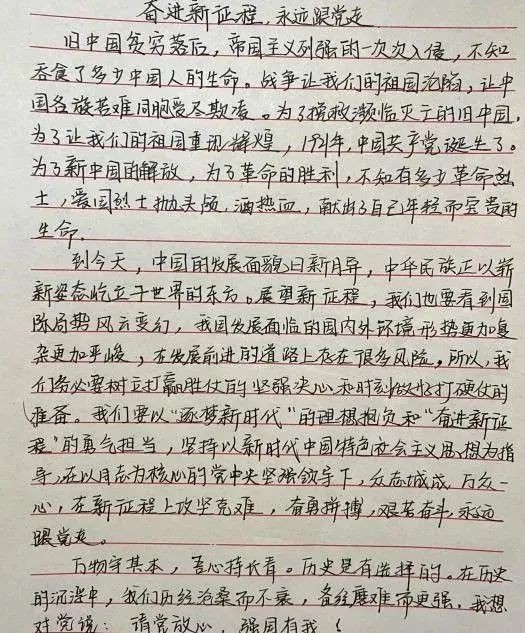 奋进新征程,永远跟党走
旧中国贫穷落后,帝国主义列强的一次次入侵,不知
吞食了多少中国人的生命。战争让我们的祖国沦陷,让中
国各族苦难同胞受尽欺凌。为了挽救濒临灭亡的旧中国,
为了让我们的祖国重现辉煌,1921年,中国共产党诞生了。
为了新中国的解放,为了革命的胜利,不知有多少革命烈
士,爱国烈士抛头颅,洒热血,献出了自己年轻而宝贵的
生命。
到今天,中国的发展面貌日新月异,中华民族正以崭
新姿态屹立于世界的东方。展望新征程,我们也要看到国
际局势风云变幻,我国发展面临的国内外环境形势更加复
杂更加严峻,在发展前进的道路上存在很多风险。所以,我
们务必要树立打赢胜仗的坚强决心和时刻做好打硬仗的
准备。我们要以“逐梦新时代”的理想抱负和“奋进新征
程”的勇气担当,坚持以新时代中国特色社会主义思想为指
导,在以同志为核心的党中央坚强领导下,众志成城 万众一
心,在新征程上攻坚克难,奋勇拼搏,艰苦奋斗,永远
跟党走。
万物守其本,吾心持长青。历史是有选择的。在历史
的沉浸中,我们历经沧桑而不衰,备经磨难而更强。我想
对党说:请党放心,强国有我!